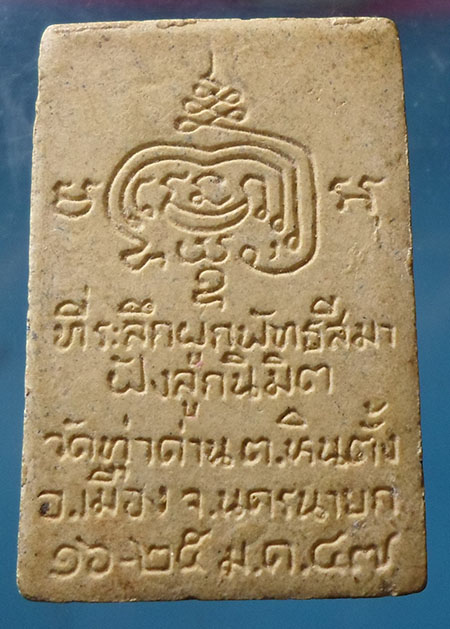 ที่ระลึกผูกพัทธสีมา
ฝังลูกนิมิต
วัดท่าด่าน ต.หินตั้ง
อ.เมือง จ.นครนายก
๑๖-๒๕ ม.ค.๔๗